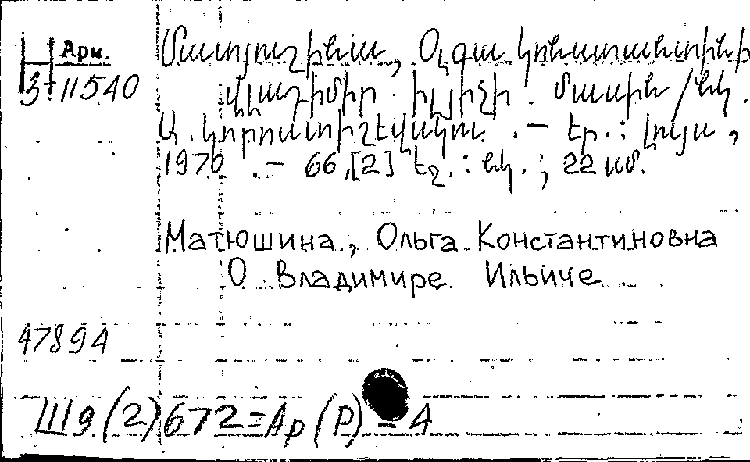 Арм.
3-11540
Մատյուշինա, Օլգա Կոնստանտինի
Վլադիմիր Իլյիչի մասին / նկ.
Ա. Կորոստիշևսկու. — Եր.: Լույս,
1970. — 66,[2] էջ.: նկ.; 22 սմ.
Матюшина, Ольга Константиновна
О Владимире Ильиче
47894
Ш9(2)672=Ар(Р)-4